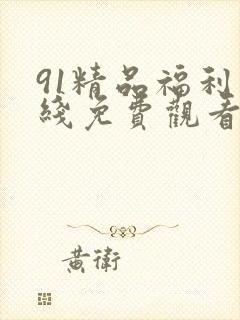 91精品福利
綫免費觀看
黃衛